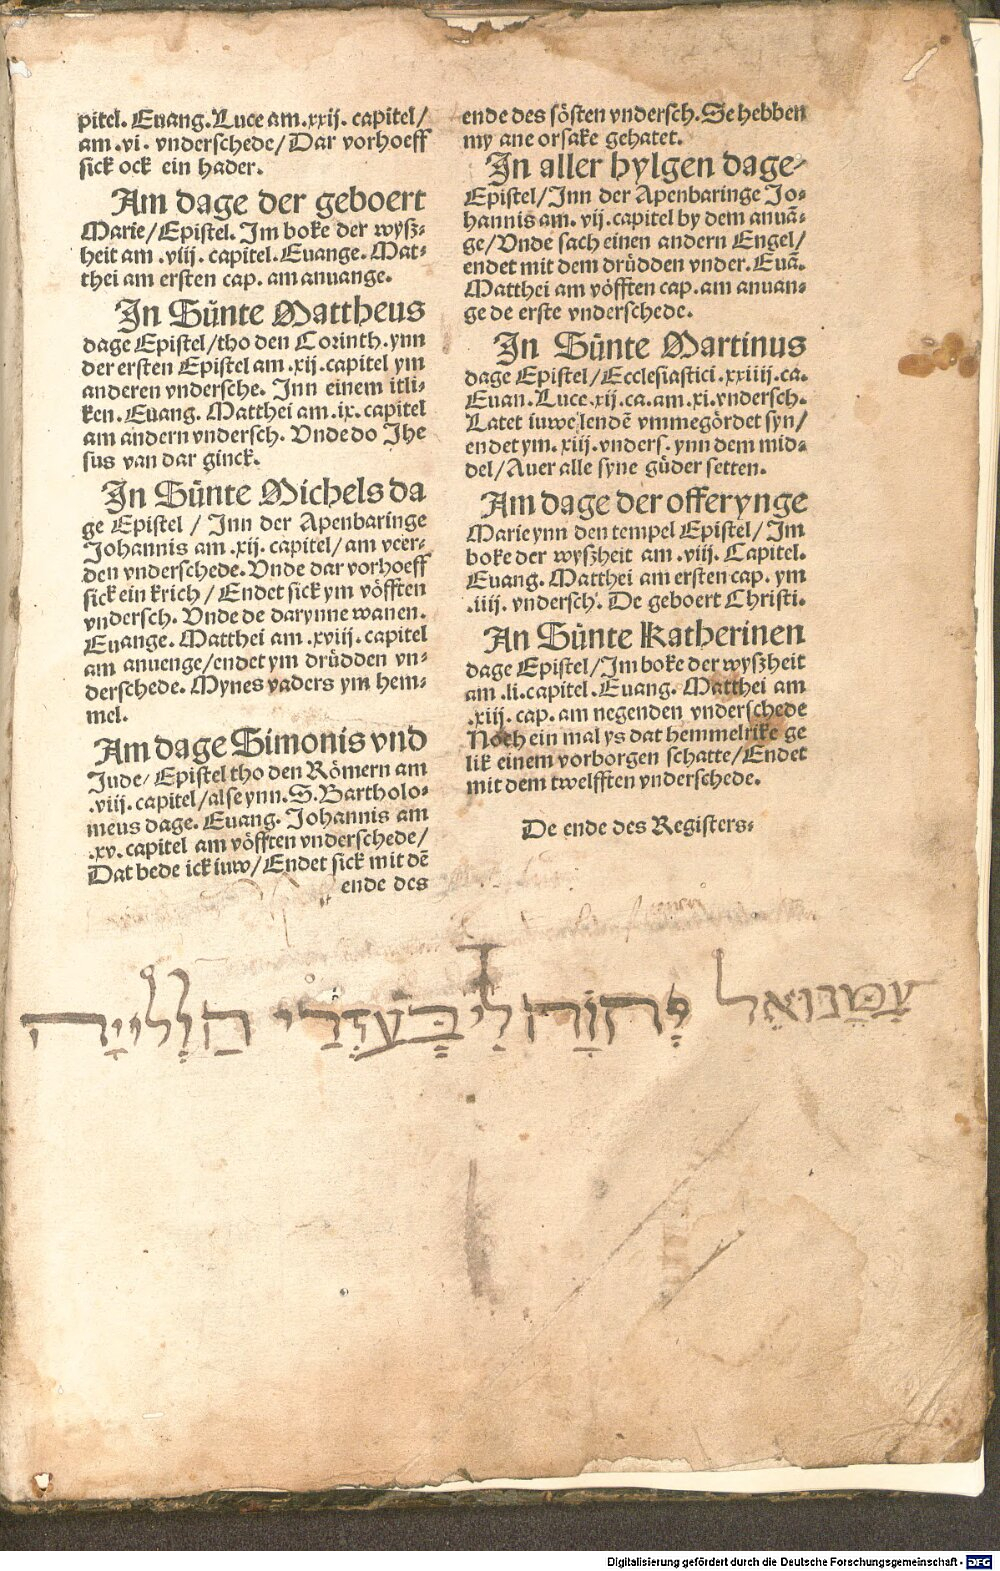 pitel. Euang. Luce am .xxij. capitel/
am .vi. vnderschede/ Dar vorhoeff
sick ock ein hader.
Am dage der geboert
Marie/ Epistel. Im boke der wysz-
heit am .viij. capitel. Euange. Mat-
thei am ersten cap. am anuange.
In Sünte Mattheus
dage Epistel/ tho den Corinth. ynn
der ersten Epistel am .xij. capitel ym
anderen vndersche. Inn einem itli-
ken. Euang. Matthei am .ix. capitel
am andern vndersch. Vnde do Jhe
sus van dar ginck.
In Sünte Michels da
ge Epistel / Inn der Apenbaringe
Johannis am .xij. capitel/ am veer-
den vnderschede. Vnde dar vorhoeff
sick ein krich/ Endet sick ym vöfften
vndersch. Vnde de darynne wanen.
Euange. Matthei am .xviij. capitel
am anuenge/ endet ym drüdden vn-
derschede. Mynes vaders ym hem-
mel.
Am dage Simonis vnd
Jude/ Epistel tho den Römern am
.viij. capitel/ alse ynn .S. Bartholo-
meus dage. Euang. Johannis am
.xv. capitel am vöfften vnderschede/
Dat bede ick iuw/ Endet sick mit dē
ende des
ende des sösten vndersch. Se hebben
my ane orsake gehatet.
In aller hylgen dage-
Epistel/ Inn der Apenbaringe Jo-
hannis am. vij. capitel by dem anuā-
ge/ Vnde sach einen andern Engel/
endet mit dem drüdden vnder. Euā.
Matthei am vöfften cap. am anuan-
ge de erste vnderschede.
In Sünte Martinus
dage Epistel/ Ecclesiastici .xxiiij. ca.
Euan. Luce .xij. ca. am. xi. vndersch.
Latet iuwe lendē vmmegördet syn/
endet ym. xiij. vnders. ynn dem mid-
del/ Auer alle syne güder setten.
Am dage der offerynge
Marie ynn den tempel Epistel/ Im
boke der wyszheit am .viij. Capitel.
Euang. Matthei am ersten cap. ym
.iiij. vndersch. De geboert Christi.
An Sünte Katherinen
dage Epistel/ Im boke der wyszheit
am .li. capitel. Euang. Matthei am
.xiij. cap. am negenden vnderschede
Noch ein mal ys dat hemmelrike ge
lik einem vorborgen schatte/ Endet
mit dem twelfften vnderschede.
De ende des Registers-
עִמָּנוּאֵל יְהוָֹה לִי בְּעֹזְרַי הַלְלוּיָהּ
Digitalisierung gefördert durch die Deutsche Forschungsgemeinschaft - DFG